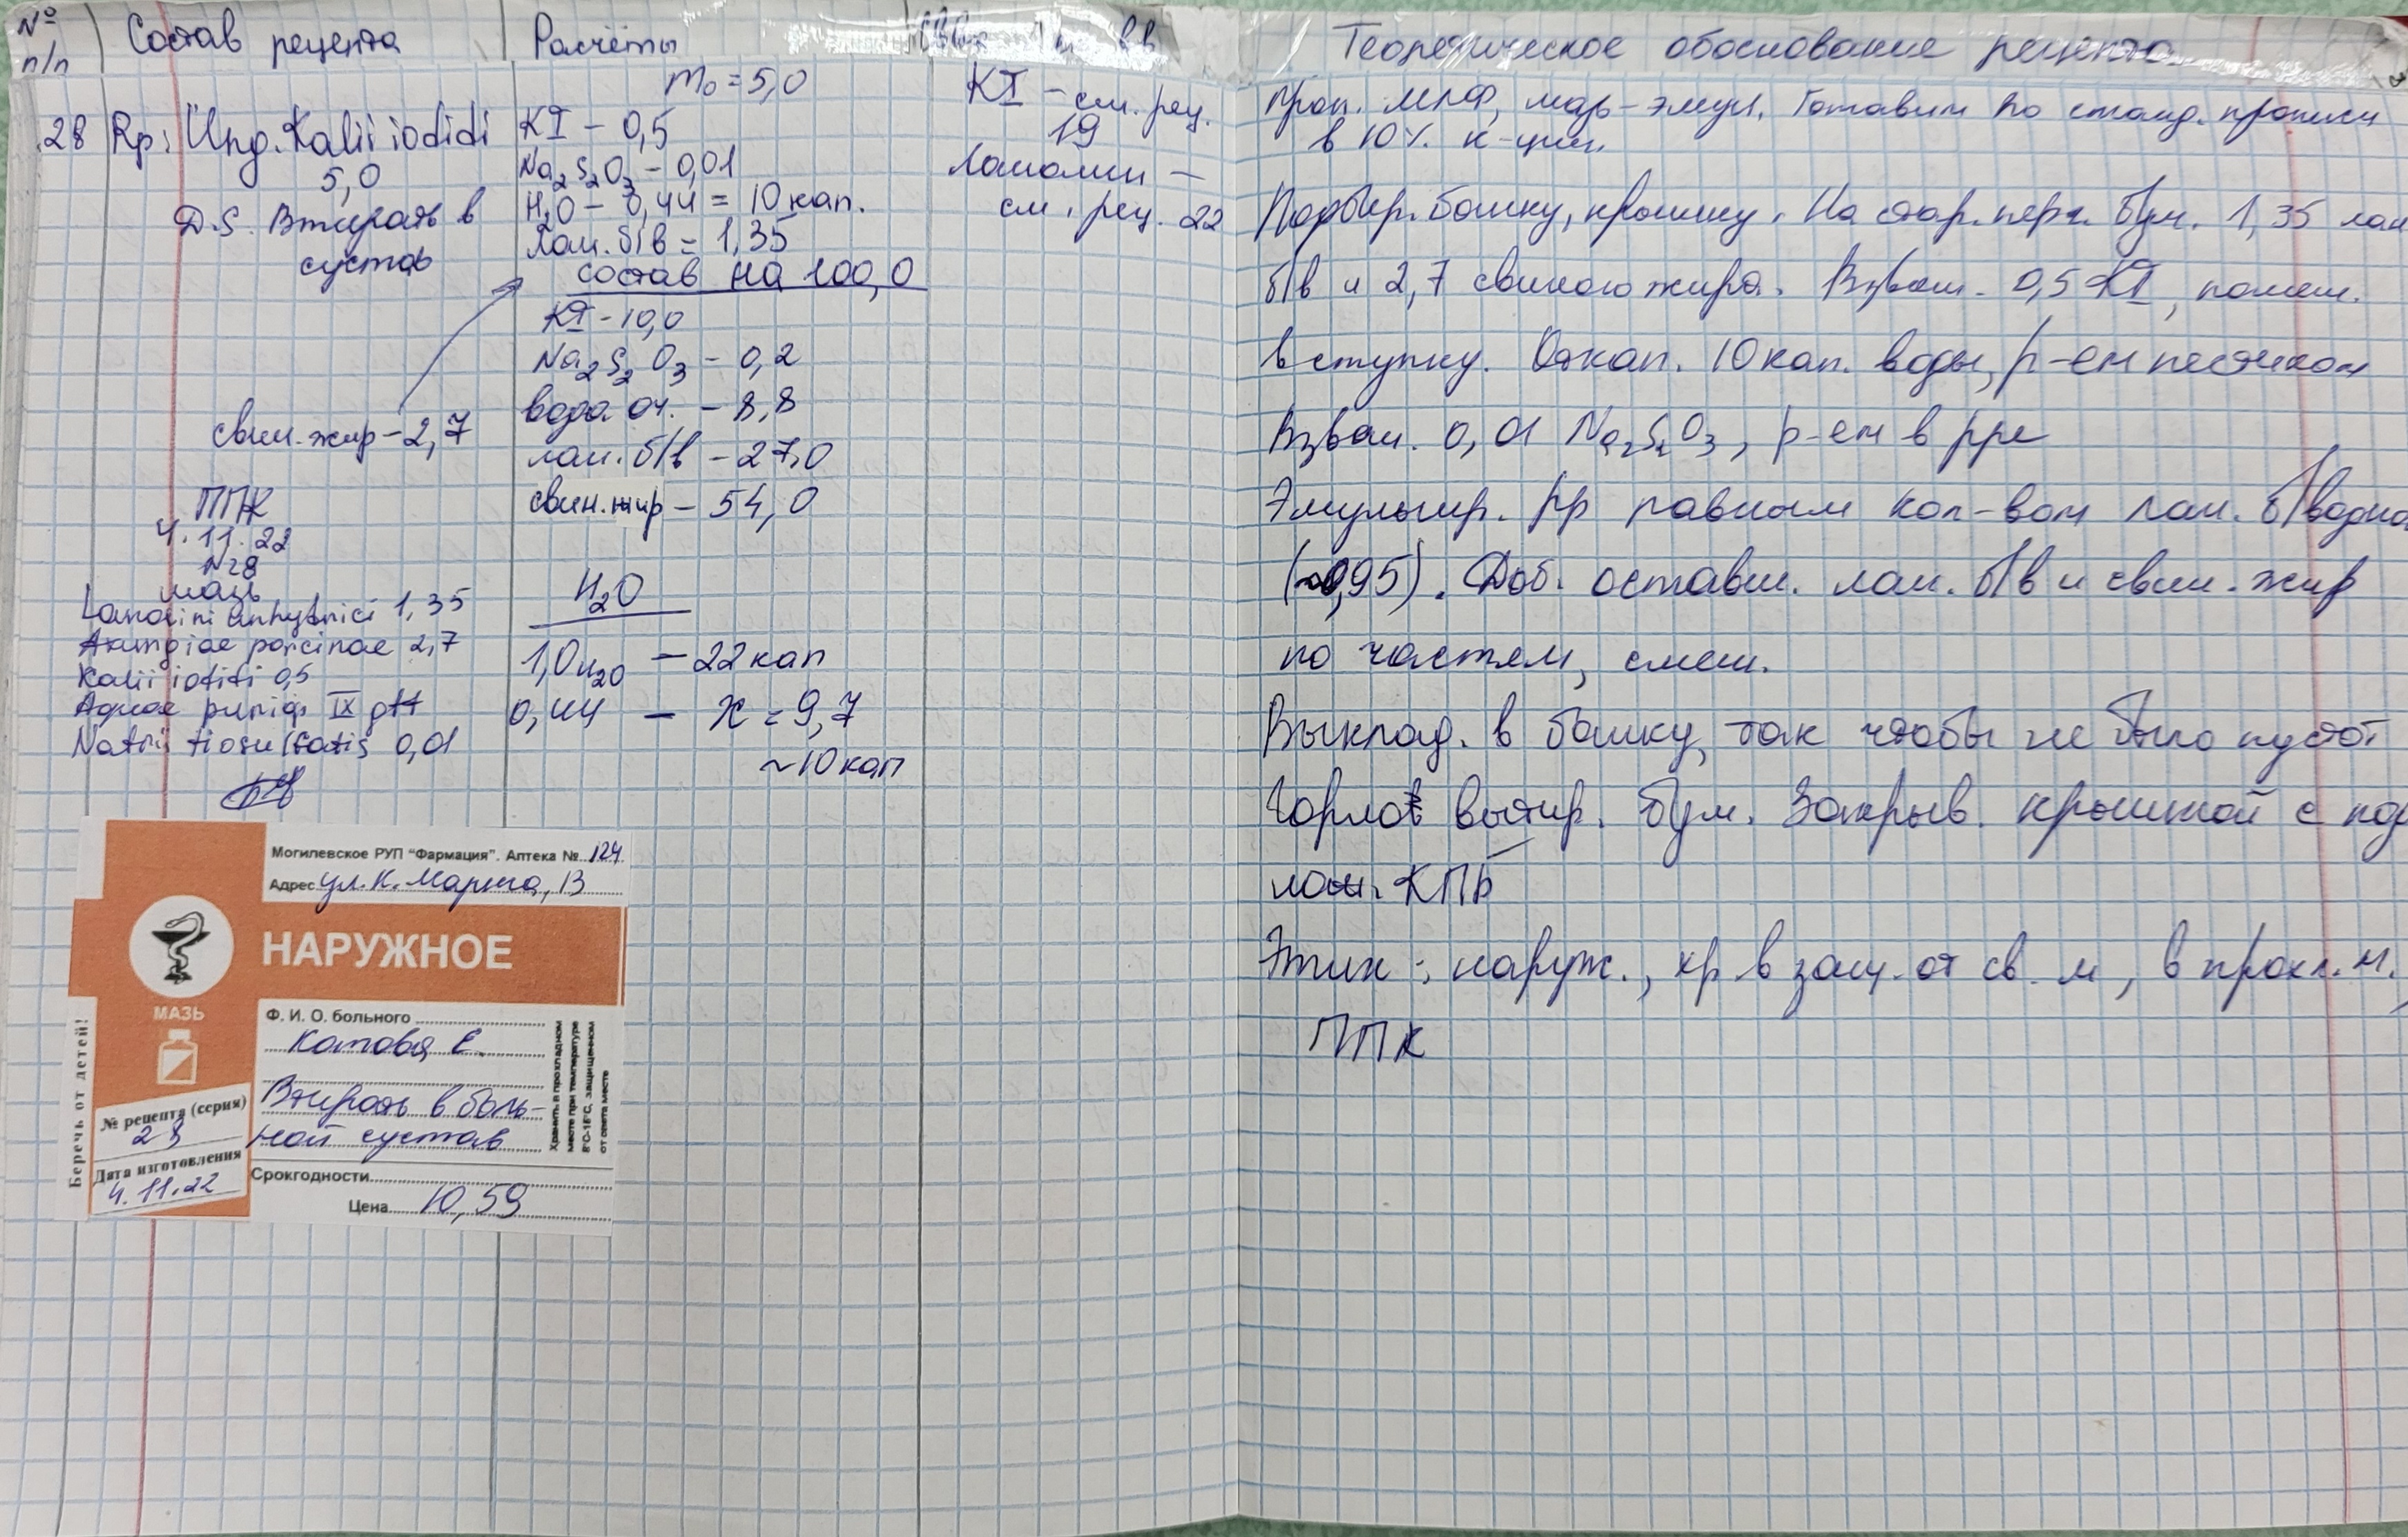 № п/п
Состав рецепта
Расчёты
Теоретическое обоснование рецепта
28 Rp: Ung. Kalii iodidi
5,0
D.S. Втирать в
сустав
свин. жир - 2,7
ППК
4.11.22
N28
мазь
Lanolini anhydrici 1,35
Axungiae porcinae 2,7
Kalii iodidi 0,5
Aquae purif. IX gtt
Natrii tiosulfatis 0,01
m₀ = 5,0
KI - 0,5
Na₂S₂O₃ - 0,01
H₂O - 0,44 = 10 кап.
лан. б/в = 1,35
состав на 100,0
KI - 10,0
Na₂S₂O₃ - 0,2
вода оч. - 8,8
лан. б/в - 27,0
свин. жир - 54,0
H₂O
1,0 H₂O — 22 кап
0,44 — x = 9,7
~10 кап
KI - см. рец.
19
Ланолин —
см. рец. 22
Проп. МЛФ, мазь-эмул. Готовим по станд. прописи
в 10% к-ции.
Подбир. банку, крышку. На стар. перг. бум. 1,35 лан
б/в и 2,7 свиного жира. Взвеш. 0,5 KI, помещ.
в ступку. Откап. 10 кап. воды, р-ем пестиком
Взвеш. 0,01 Na₂S₂O₃, р-ем в рре
Эмульгир. рр равным кол-вом лан. б/водно
(~0,95). Доб. оставш. лан. б/в и свин. жир
по частям, смеш.
Выклад. в банку, так чтобы не было пустот
Горло вытир. бум. Закрыв. крышкой с
КПБ
Этик: наруж., хр в защ. от св. м, в прохл. м.,
ППК
Могилевское РУП "Фармация". Аптека № 124
Адрес ул. К. Маркса, 13
НАРУЖНОЕ
МАЗЬ
Беречь от детей!
Ф. И. О. больного
Котова Е.
Втирать в боль-
ной сустав
Хранить в прохладном
месте при температуре
8°С-15°С, защищенном
от света месте
№ рецепта (серия)
28
Дата изготовления
4.11.22
Срокгодности
Цена 10,59